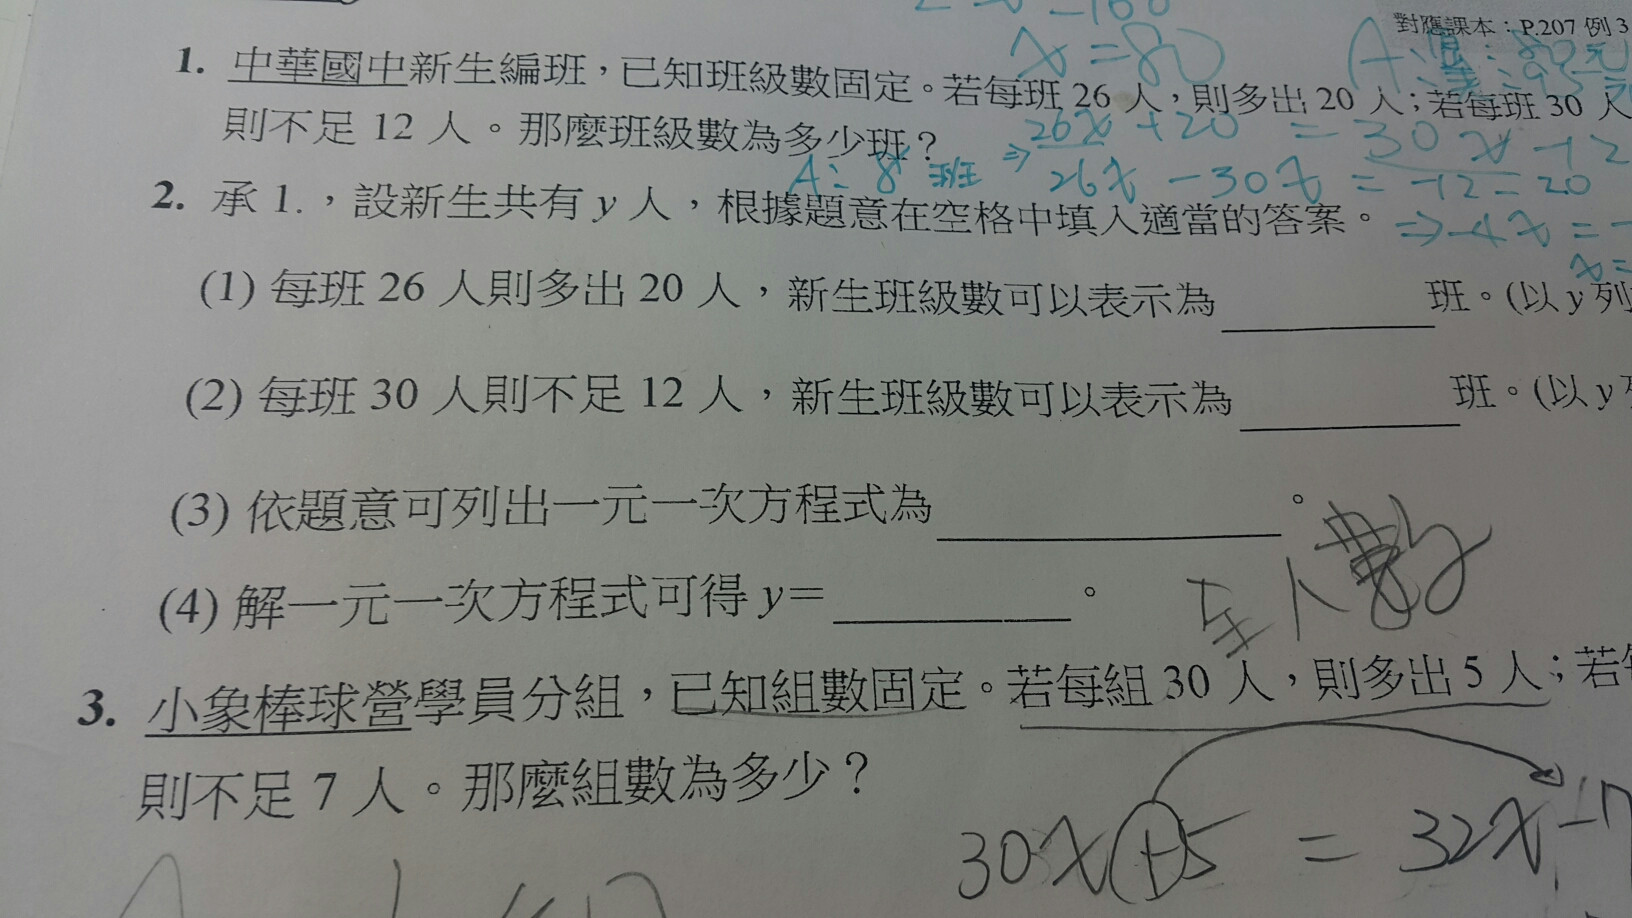 對應課本：P.207 例 3
x = 80
1. 中華國中新生編班，已知班級數固定。若每班 26 人，則多出 20 人；若每班 30 人
26x + 20 = 30x - 12
則不足 12 人。那麼班級數為多少班？
A: 8 班 ⇒ 26x - 30x = -12 - 20
2. 承 1.，設新生共有 y 人，根據題意在空格中填入適當的答案。
⇒ -4x = -
x =
(1) 每班 26 人則多出 20 人，新生班級數可以表示為 班。(以 y 列
(2) 每班 30 人則不足 12 人，新生班級數可以表示為 班。(以 y
(3) 依題意可列出一元一次方程式為 。
(4) 解一元一次方程式可得 y＝ 。
3. 小象棒球營學員分組，已知組數固定。若每組 30 人，則多出 5 人；若
則不足 7 人。那麼組數為多少？
30x + 5 = 32x - 7